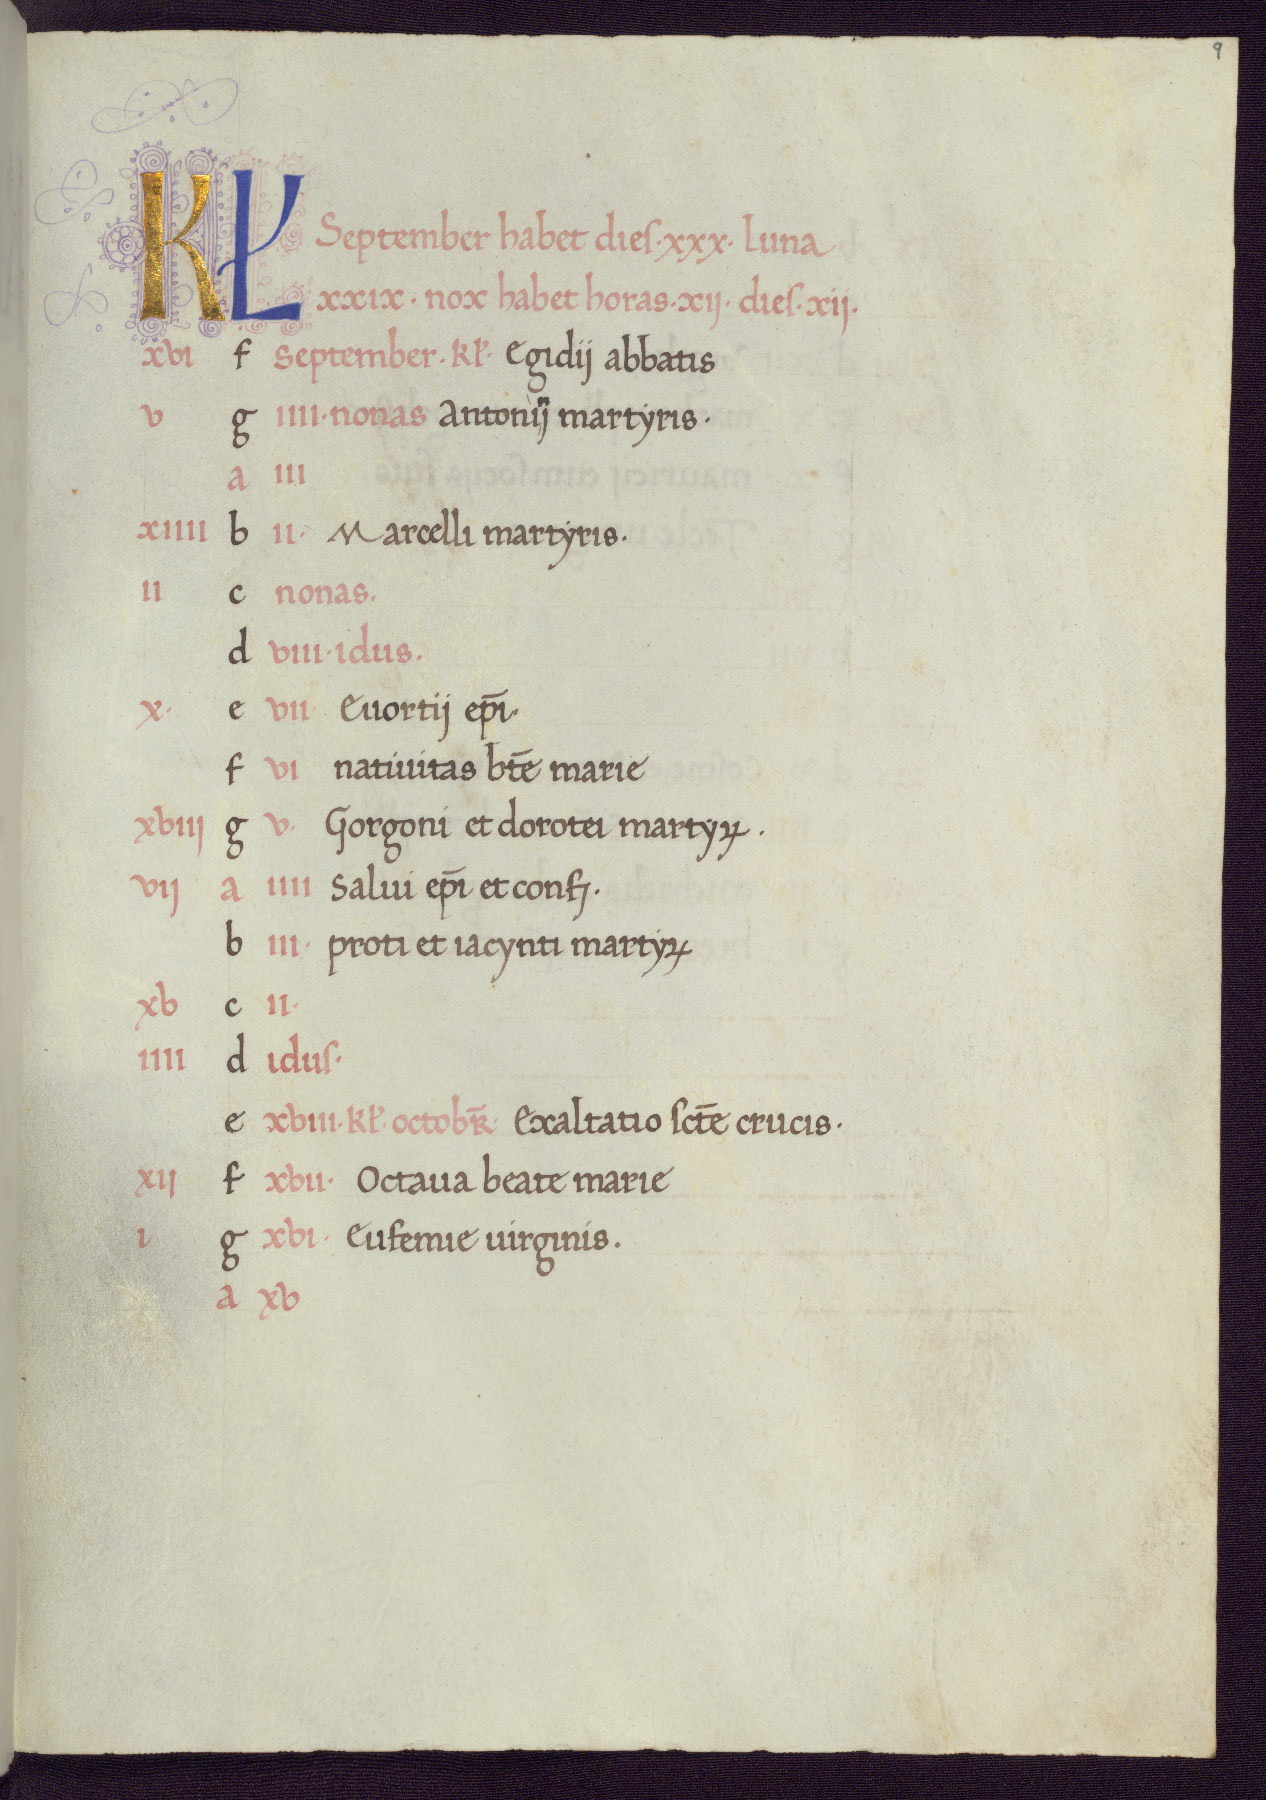 9
KL September habet dies·xxx· luna
xxix· nox habet horas·xij· dies·xij·
xvi f september·kl̄· Egidij abbatis
v g iiii·nonas Antonij martyris·
a iii
xiiii b ii· Marcelli martyris·
ii c nonas·
d viii·idus·
x· e vii· Euortij ep̄i·
f vi natiuitas bt̄e marie
xviii g v· Gorgoni et dorotei martyꝝ·
vij a iiii Salui ep̄i et conf̄·
b iii· proti et iacynti martyꝝ
xv c ii·
iiii d idus·
e xviii·kl̄·octobr̄· Exaltatio sct̄e crucis·
xij f xvii· Octaua beate marie
i g xvi· Eufemie uirginis·
a xv